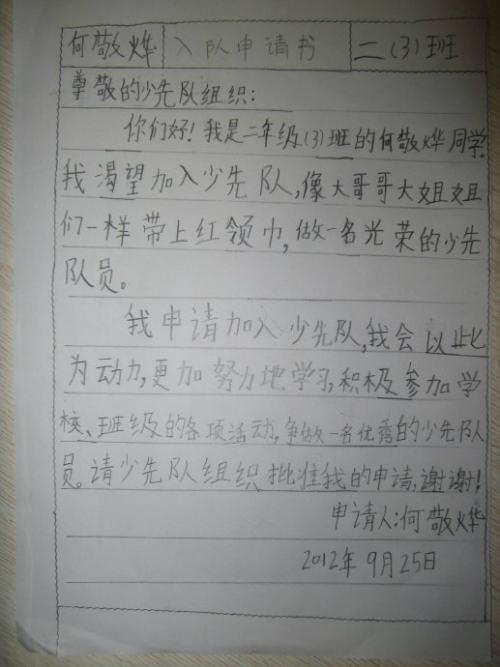 何敬烨 入队申请书 二(3)班
尊敬的少先队组织:
你们好!我是二年级(3)班的何敬烨同学.
我渴望加入少先队,像大哥哥大姐姐
们一样带上红领巾,做一名光荣的少先
队员。
我申请加入少先队,我会以此
为动力,更加努力地学习,积极参加学
校、班级的各项活动,争做一名优秀的少先队
员。请少先队组织批准我的申请,谢谢!
申请人:何敬烨
2012年9月25日